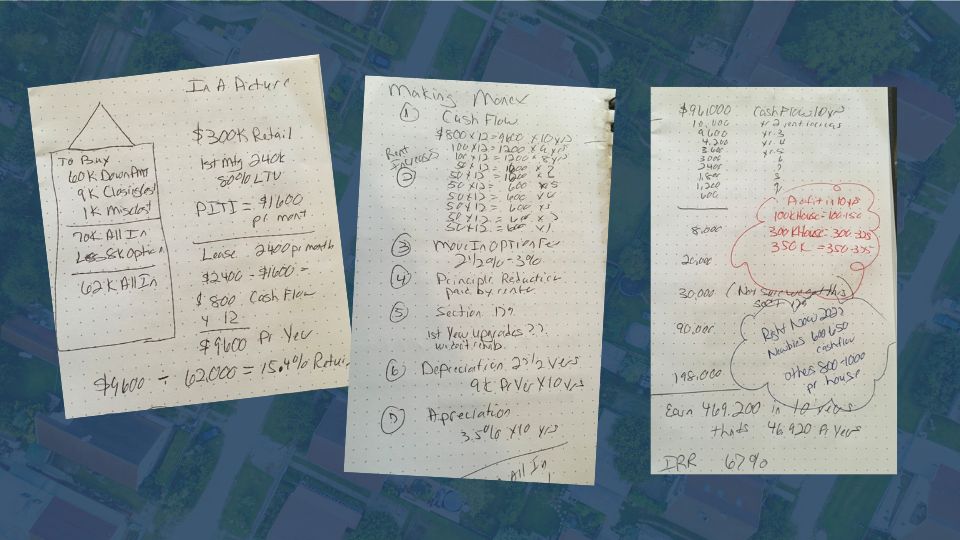 In A Picture
To Buy
60K Down Pmt
9K Closing Cost
1K Misc Cost
70K All In
Less 8K Option
62K All In
$300K Retail
1st Mtg 240K
80% LTV
PITI = $1600
pr mont
Lease 2400 pr month
$2400 - $1600 =
$800 Cash Flow
x 12
$9600 Pr Year
$9600 ÷ 62,000 = 15.4% Return
Making Money
① Cash Flow
$800 x 12 = 9600 x 10 yrs
Rent Increases
100 x 12 = 1200 x 9 yrs
100 x 12 = 1200 x 8 yrs
50 x 12 =
50 x 12 =
50 x 12 = 600 x 5
50 x 12 = 600
50 x 12 = 600 x 3
50 x 12 = 600 x 2
50 x 12 = 600 x 1
②
③ Move In Option Fee
2 1/2% - 3%
④ Principle Reduction
paid by renter
⑤ Section 179
1st Year Upgrades ??
without rehab
⑥ Depreciation 27 1/2 Yers
9K Pr Yer x 10 yrs
Apreciation
3.5% x 10 yrs
All In
$96,000 Cash Flow 10 yrs
10,800 yr 2 rent increas
9,600 yr. 3
4,200 yr. 4
3,600 yr. 5
3000 6
2400 7
1,800
1,200
600
8,000
20,000
30,000 (Not Sure we get this)
Sect 179
90,000
198,000
Profit in 10 yrs
100K House = 100-150
300K House = 300-325
350K = 350-375
Right Now 2022
Newbies 600-650
cashflow
others 800-1000
pr house
Earn 469,200 in 10 years
thats 46,920 Pr Year
IRR 67%